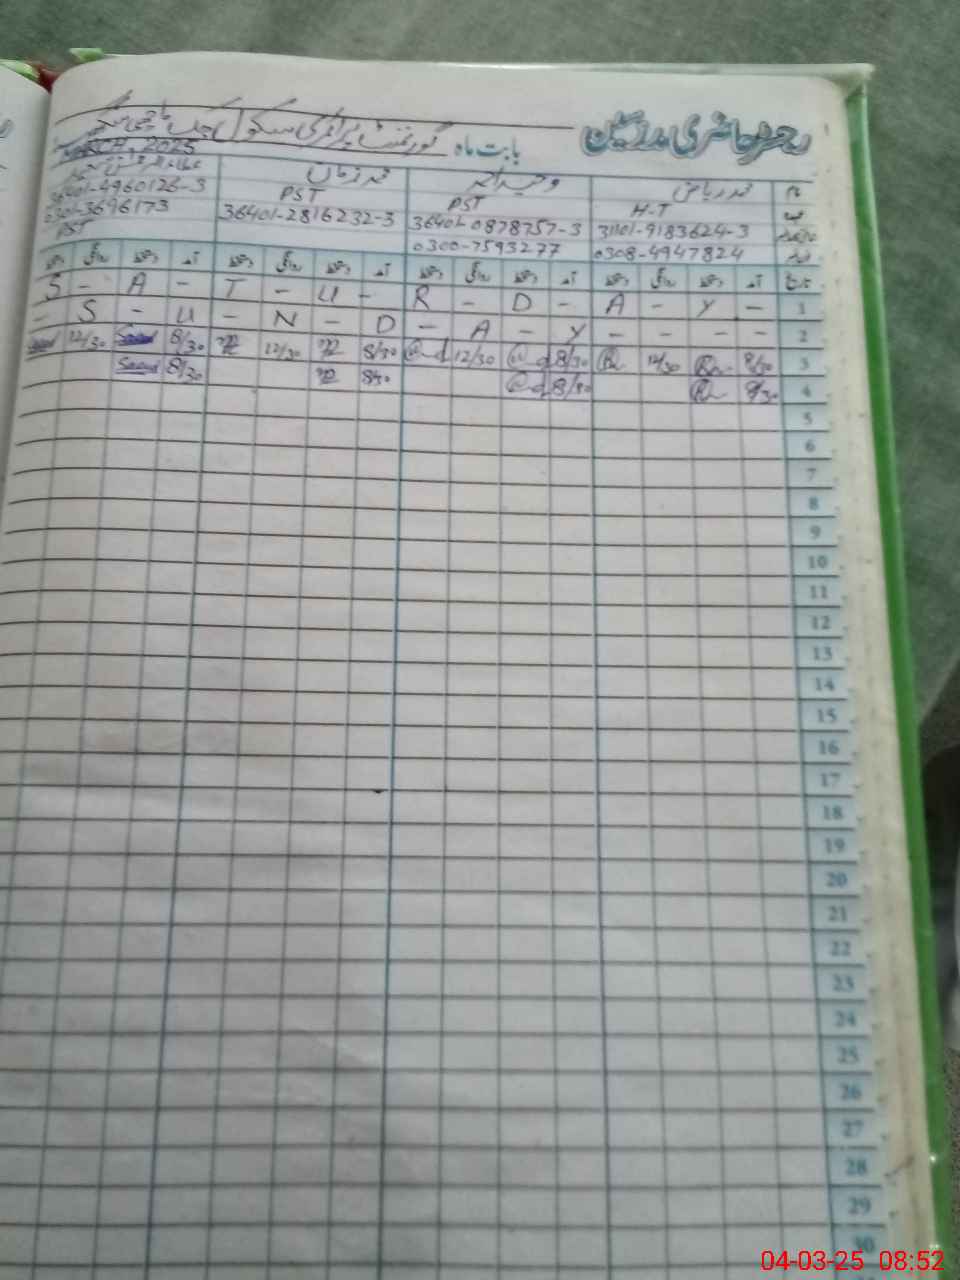 رجسٹر حاضری مدرسین
بابت ماہ گورنمنٹ پرائمری سکول
MARCH, 2025
نام محمد ریاض وحید احمد محمد زمان
H-T PST PST 36401-4960126-3
31101-9183624-3 36401-0878757-3 36401-2816232-3 0301-3696173
0308-4947824 0300-7593277 PST
تاریخ آمد دستخط روانگی دستخط آمد دستخط روانگی دستخط آمد دستخط روانگی دستخط آمد دستخط روانگی دستخط
S - A - T - U - R - D - A - Y - 1
- S - U - N - D - A - Y - - - - 2
12/30 Saeed 8/30 12/30 8/30 12/30 8/30 12/30 8/30 3
Saeed 8/30 8/30 8/30 8/30 4
5
6
7
8
9
10
11
12
13
14
15
16
17
18
19
20
21
22
23
24
25
26
27
28
29
30
04-03-25 08:52